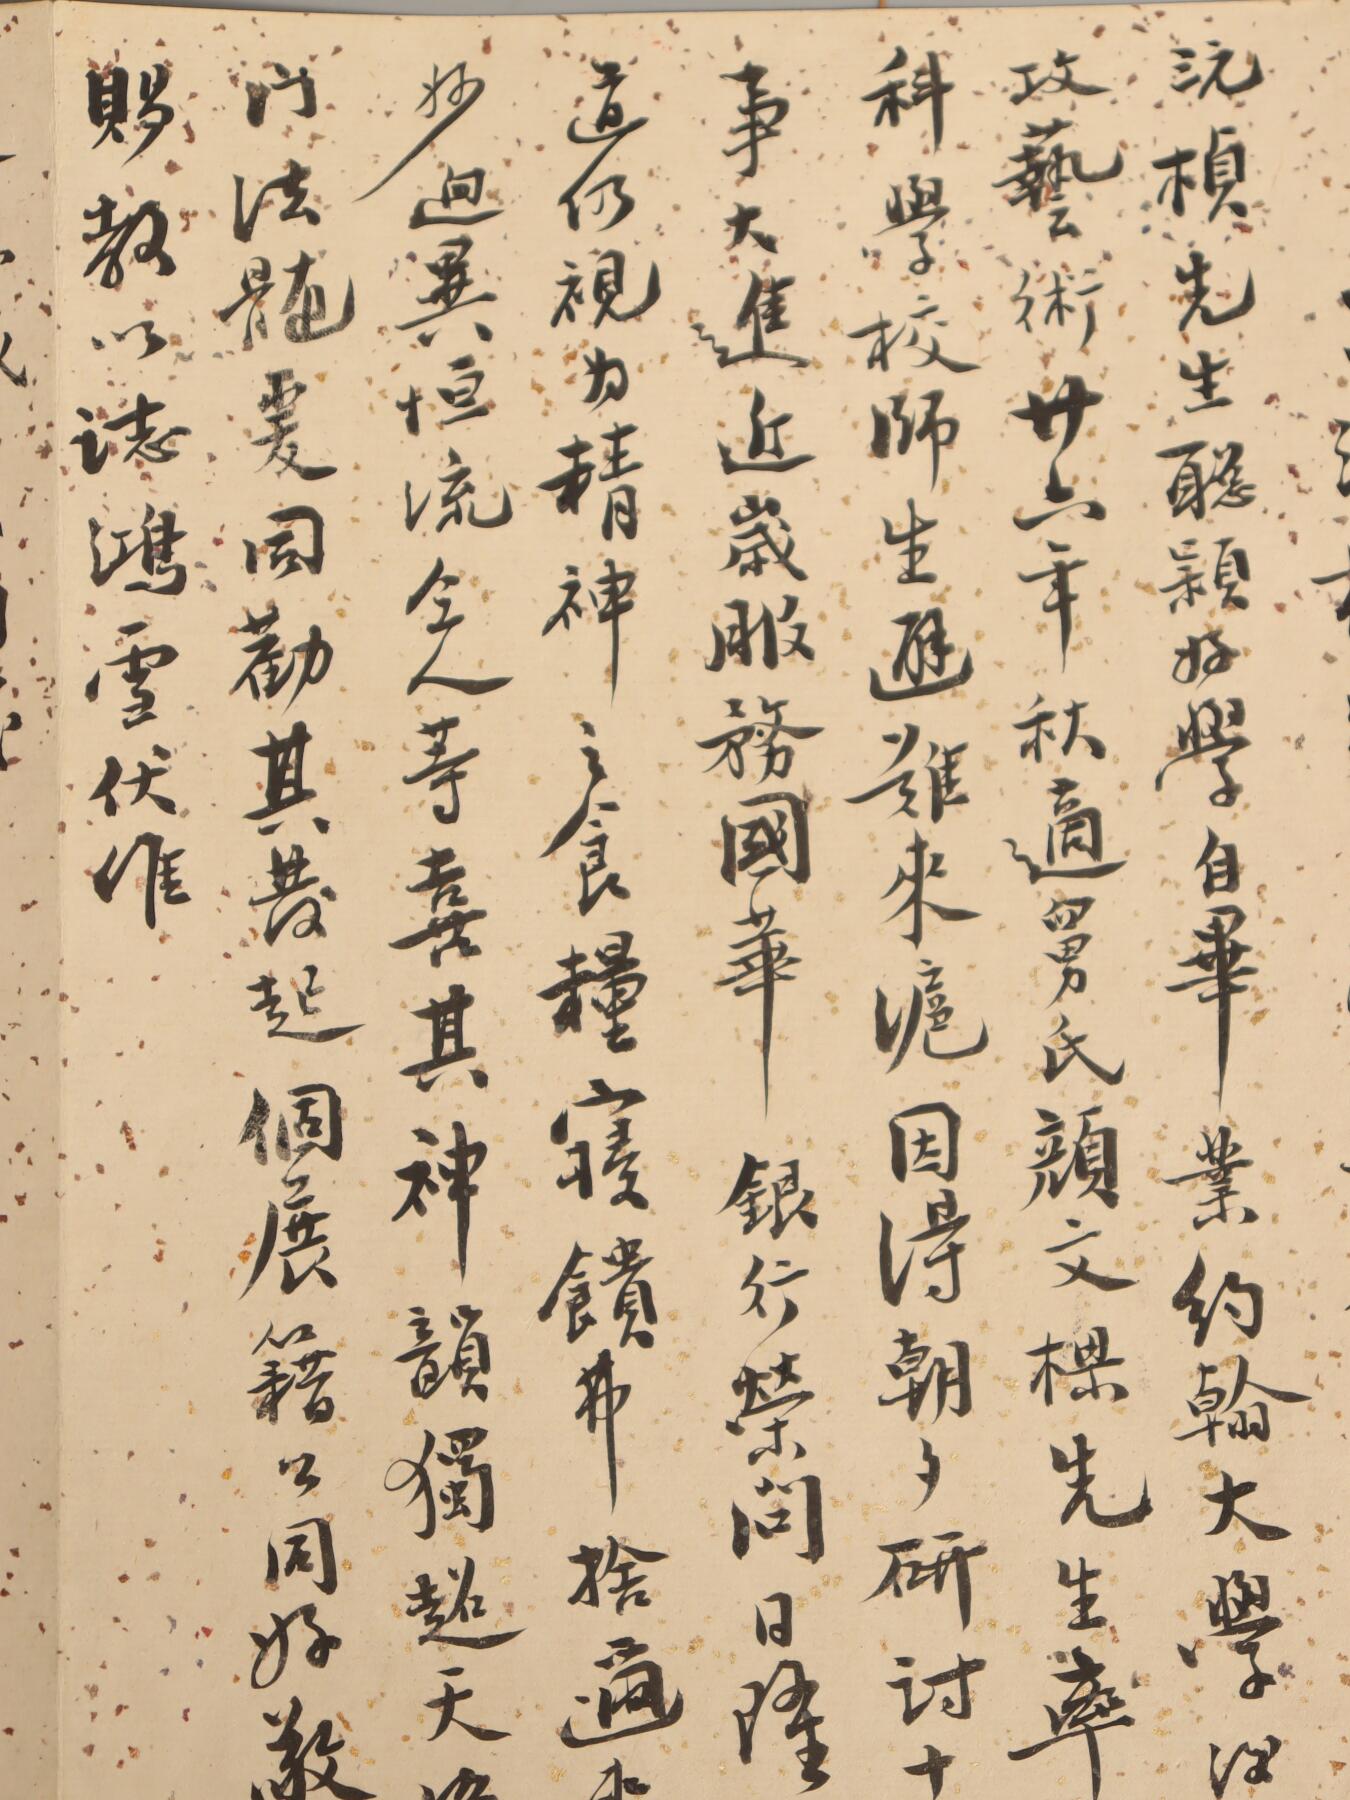 沅楨先生聰穎好學自畢業約翰大學後
攻藝術廿六年秋適舅氏顏文樑先生率
科學校師生避難來滬因得朝夕研討十
事大進近歲服務國華銀行榮問日隆
道仍視為精神之食糧寢饋弗捨適來
妙迥異恒流令人等喜其神韻獨超天
門法髓爰同勸其發起個展籍公同好敬
賜教以誌鴻雪伏惟